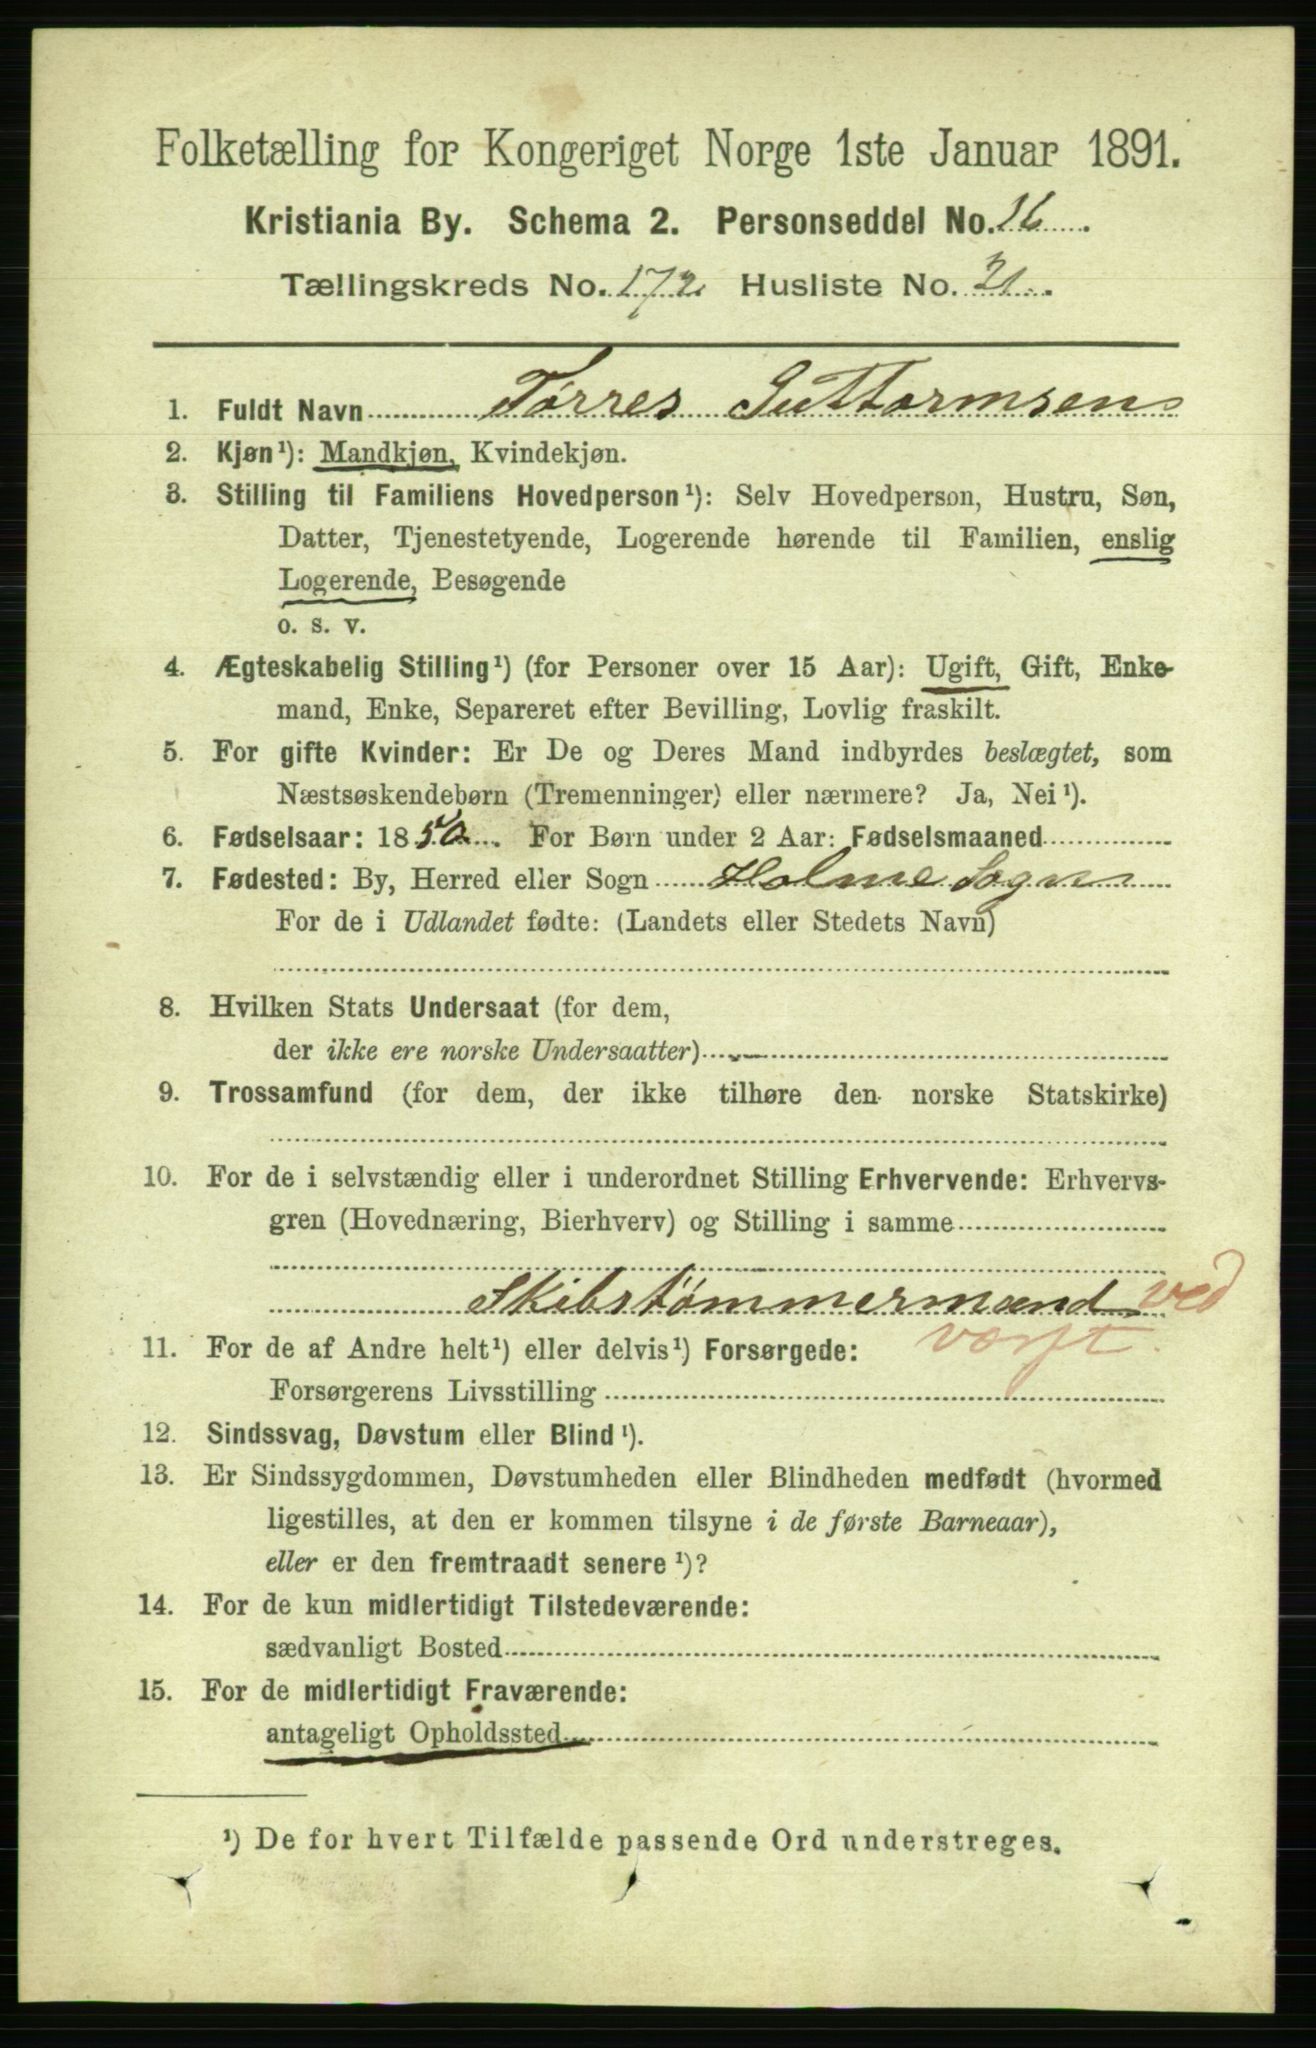 Folketælling for Kongeriget Norge 1ste Januar 1891.
Kristiania By. Schema 2. Personseddel No. 16
Tællingskreds No. 172 Husliste No. 21
1. Fuldt Navn Tørres Guttormsen
2. Kjøn¹): Mandkjøn, Kvindekjøn.
3. Stilling til Familiens Hovedperson¹): Selv Hovedperson, Hustru, Søn,
Datter, Tjenestetyende, Logerende hørende til Familien, enslig
Logerende, Besøgende
o. s. v.
4. Ægteskabelig Stilling¹) (for Personer over 15 Aar): Ugift, Gift, Enke-
mand, Enke, Separeret efter Bevilling, Lovlig fraskilt.
5. For gifte Kvinder: Er De og Deres Mand indbyrdes beslægtet, som
Næstsøskendebørn (Tremenninger) eller nærmere? Ja, Nei¹).
6. Fødselsaar: 1850. For Børn under 2 Aar: Fødselsmaaned
7. Fødested: By, Herred eller Sogn Holme Sogn
For de i Udlandet fødte: (Landets eller Stedets Navn)
8. Hvilken Stats Undersaat (for dem,
der ikke ere norske Undersaatter)
9. Trossamfund (for dem, der ikke tilhøre den norske Statskirke)
10. For de i selvstændig eller i underordnet Stilling Erhvervende: Erhvervs-
gren (Hovednæring, Bierhverv) og Stilling i samme
Skibstømmermænd ved
værft.
11. For de af Andre helt¹) eller delvis¹) Forsørgede:
Forsørgerens Livsstilling
12. Sindssvag, Døvstum eller Blind¹).
13. Er Sindssygdommen, Døvstumheden eller Blindheden medfødt (hvormed
ligestilles, at den er kommen tilsyne i de første Barneaar),
eller er den fremtraadt senere¹)?
14. For de kun midlertidigt Tilstedeværende:
sædvanligt Bosted
15. For de midlertidigt Fraværende:
antageligt Opholdssted
¹) De for hvert Tilfælde passende Ord understreges.